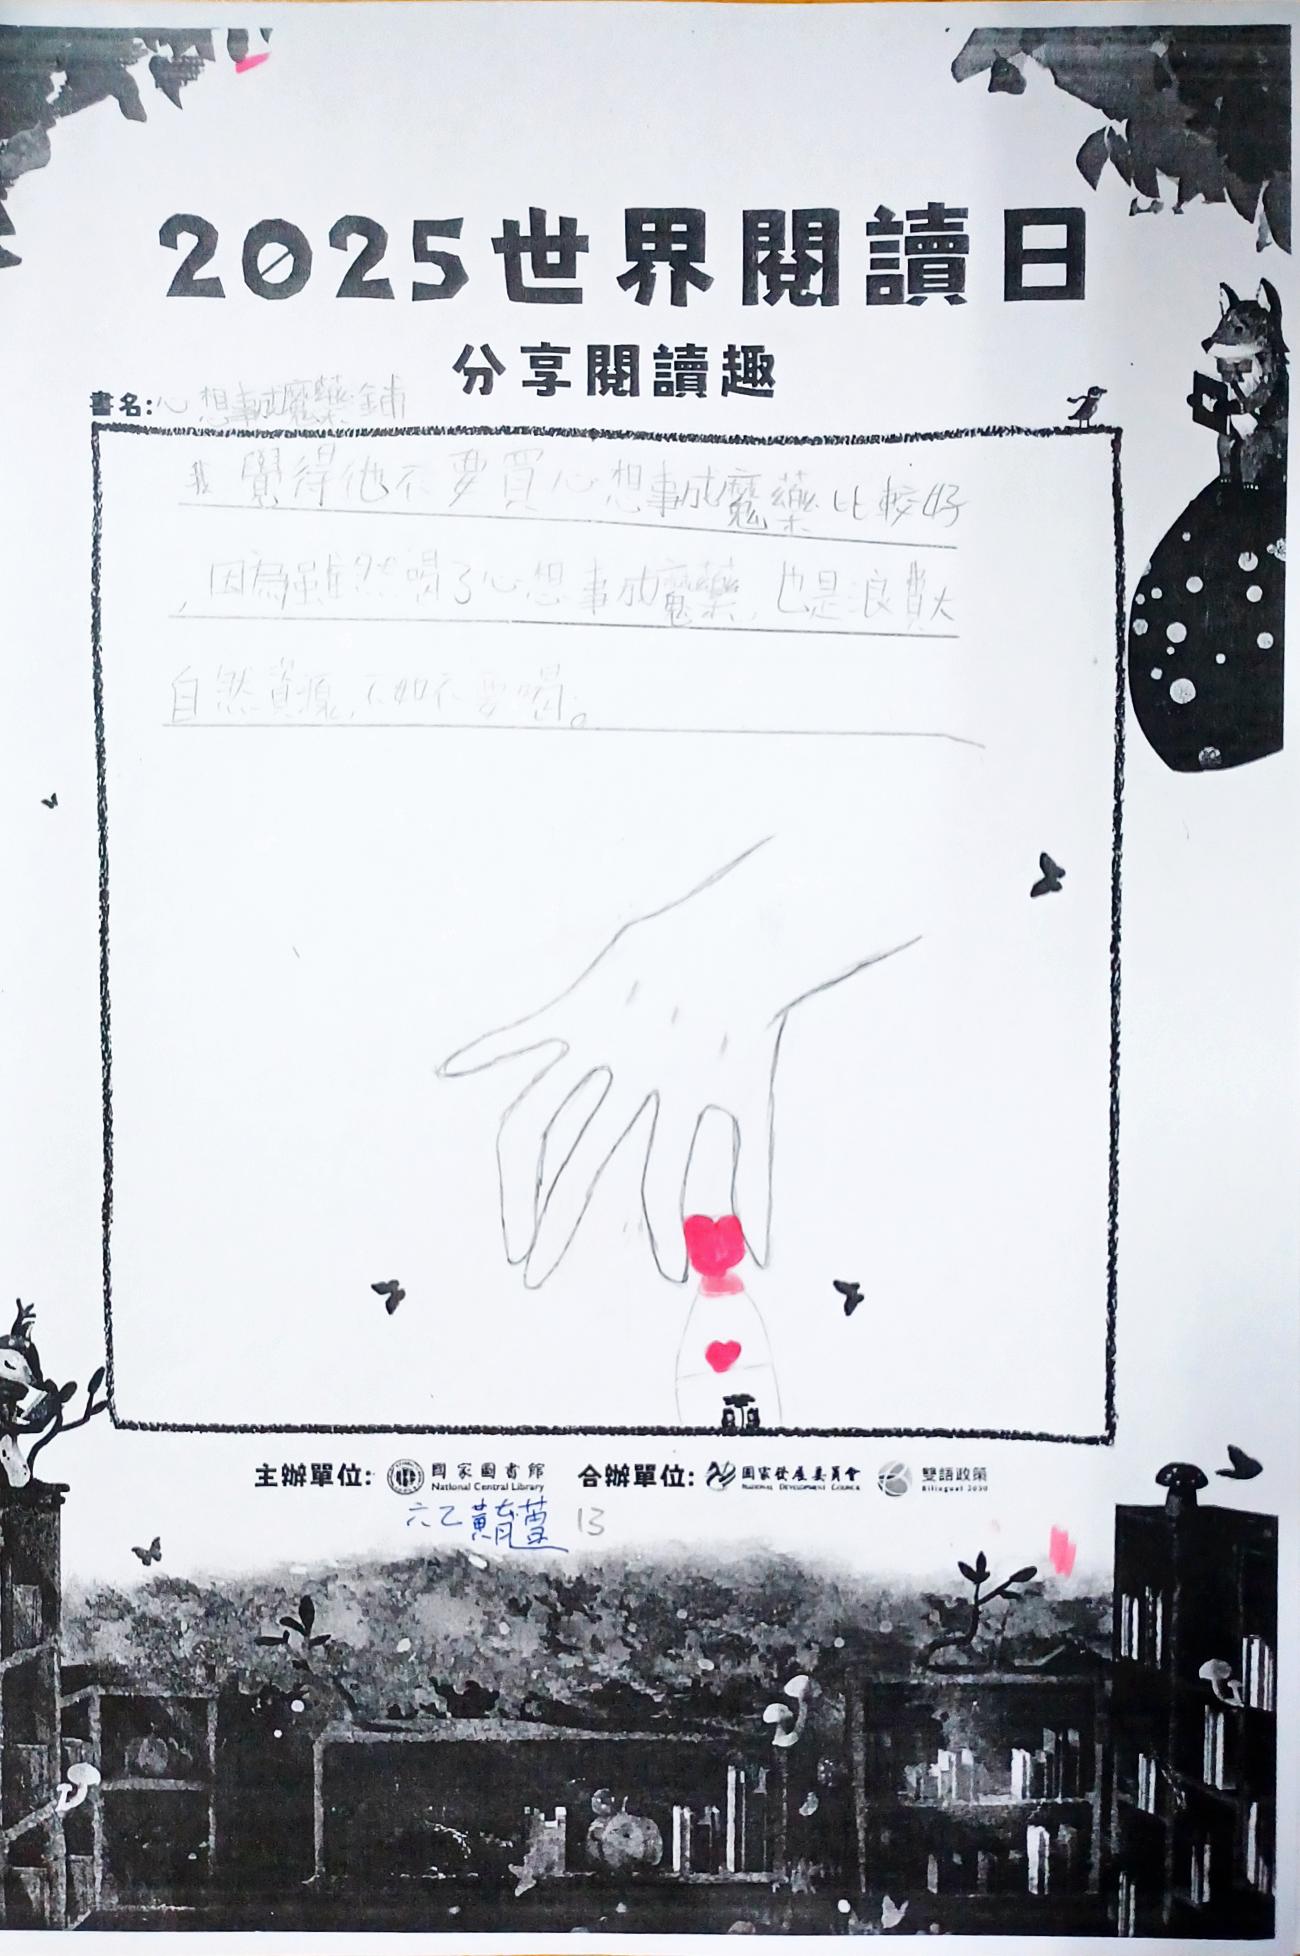 2025世界閱讀日
分享閱讀趣
書名:心想事成魔藥鋪
我覺得他不要買心想事成魔藥比較好
,因為雖然喝了心想事成魔藥,也是浪費大
自然資源,不如不要喝。
主辦單位: 國家圖書館 National Central Library 合辦單位: 國家發展委員會 National Development Council 雙語政策 Bilingual 2030
六乙黃 13